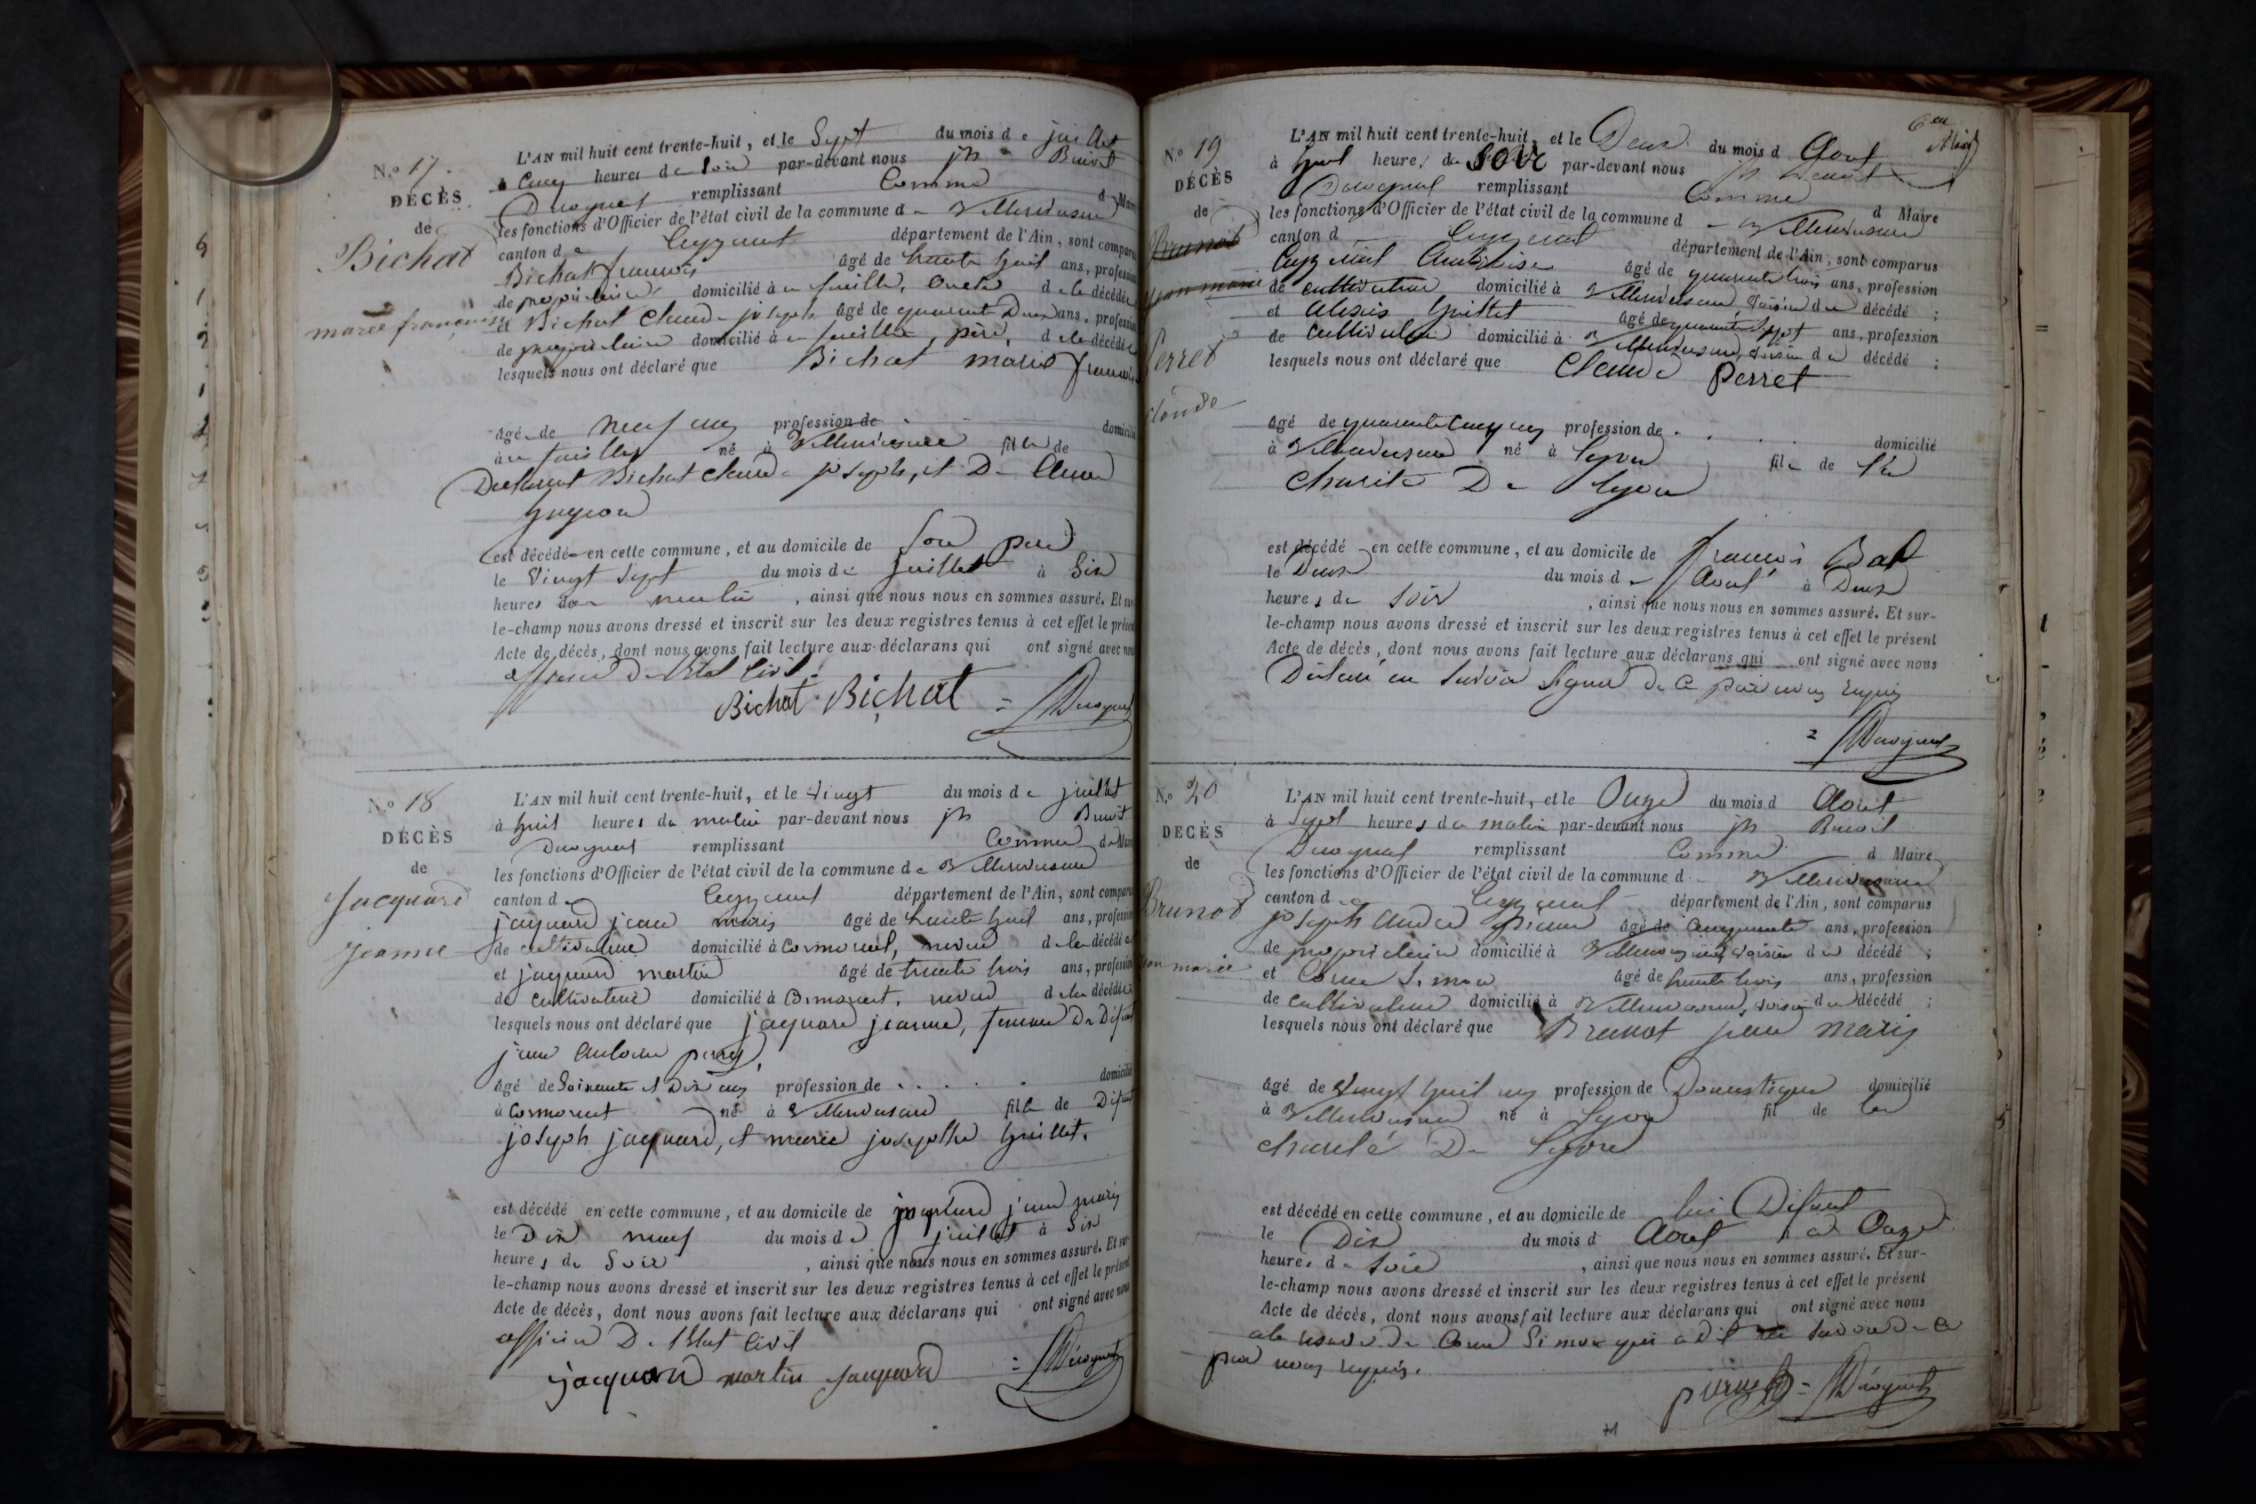 N.º 17
DÉCÈS
de
Bichat
marie françoise
L'AN mil huit cent trente-huit, et le Sept du mois de juillet
à Cinq heures du Soir par-devant nous jh Benoit
remplissant Comme
les fonctions d'Officier de l'état civil de la commune de Villereversure
canton de Ceyzeriat département de l'Ain, sont comparus
Bichat françois âgé de trente huit ans, profession
de propriétaire domicilié à oncle de la décédée
et Bichat Claude joseph âgé de quarante Deux ans, profession
de propriétaire domicilié à père, de la décédée
lesquels nous ont déclaré que Bichat marie françoise
âgée de neuf ans profession de domicilié
né à Villereversure fille de
Déclarant Bichat Claude joseph, et De
est décédée en cette commune, et au domicile de Son père
le Vingt Sept du mois de juillet à Six
heures du matin, ainsi que nous nous en sommes assuré. Et sur-
le-champ nous avons dressé et inscrit sur les deux registres tenus à cet effet le présent
Acte de décès, dont nous avons fait lecture aux déclarans qui ont signé avec nous
officier de l'état Civil.
Bichat Bichat
N.º 18
DÉCÈS
de
Jacquard
Jeanne
L'AN mil huit cent trente-huit, et le Vingt du mois de juillet
à huit heures du matin par-devant nous jh Benoit
remplissant Comme
les fonctions d'Officier de l'état civil de la commune de Villereversure
canton de Ceyzeriat département de l'Ain, sont comparus
jaquard jean marie âgé de trente huit ans, profession
de cultivateur domicilié à Cormorent, neveu de la décédée
et jaquard martin âgé de trente trois ans, profession
de cultivateur domicilié à Cormorent, neveu de la décédée
lesquels nous ont déclaré que jaquard jeanne, femme De Défunt
jean antoine
âgé de Soixante et Dix ans profession de domicilié
à Cormorent né à Villereversure fille de Défunt
joseph jaquard, et marie josephte Guillet.
est décédé en cette commune, et au domicile de jaquard jean marie
le Dix neuf du mois de juillet à Six
heures du Soir, ainsi que nous nous en sommes assuré. Et sur-
le-champ nous avons dressé et inscrit sur les deux registres tenus à cet effet le présent
Acte de décès, dont nous avons fait lecture aux déclarans qui ont signé avec nous
officier De l'état Civil
jacquard martin jacquard
N.º 19
DÉCÈS
de
Brunot
jean marie
Perret
Claude
L'AN mil huit cent trente-huit, et le Deux du mois d Aout
à huit heures du SOIR par-devant nous jh Benoit
remplissant Comme d Maire
les fonctions d'Officier de l'état civil de la commune d Villereversure
canton d Ceyzeriat département de l'Ain, sont comparus
âgé de quarante trois ans, profession
de cultivateur domicilié à Villereversure, voisin du décédé ;
et alexis Guillet âgé de quarante Sept ans, profession
de Cultivateur domicilié à Villereversure, voisin du décédé ;
lesquels nous ont déclaré que Claude perret
âgé de quarante Cinq ans profession de domicilié
à Villereversure né à Lyon fils de la
Charité De Lyon
est décédé en cette commune, et au domicile de françois
le Deux du mois d Aout à Deux
heures du Soir, ainsi que nous nous en sommes assuré. Et sur-
le-champ nous avons dressé et inscrit sur les deux registres tenus à cet effet le présent
Acte de décès, dont nous avons fait lecture aux déclarans qui ont signé avec nous
Déclaré ne Savoir Signer De Ce par nous requis
N.º 20
DÉCÈS
de
Brunot
jean marie
L'AN mil huit cent trente-huit, et le Onze du mois d Aout
à Sept heures du matin par-devant nous jh Benoit
remplissant Comme d Maire
les fonctions d'Officier de l'état civil de la commune d Villereversure
canton de Ceyzeriat département de l'Ain, sont comparus
joseph andré pierre âgé de Cinquante ans, profession
de propriétaire domicilié à Villereversure, voisin du décédé ;
et Come Simon âgé de trente trois ans, profession
de Cultivateur domicilié à Villereversure, voisin du décédé ;
lesquels nous ont déclaré que Brunot jean marie
âgé de Vingt huit ans profession de Domestique domicilié
à Villereversure né à Lyon fil de la
Charité De Lyon
est décédé en cette commune, et au domicile de lui Défunt
le Dix du mois d Aout à Onze
heures du Soir, ainsi que nous nous en sommes assuré. Et sur-
le-champ nous avons dressé et inscrit sur les deux registres tenus à cet effet le présent
Acte de décès, dont nous avons fait lecture aux déclarans qui ont signé avec nous
a la réserve de Come Simon qui a dit ne Savoir De Ce
par nous requis.